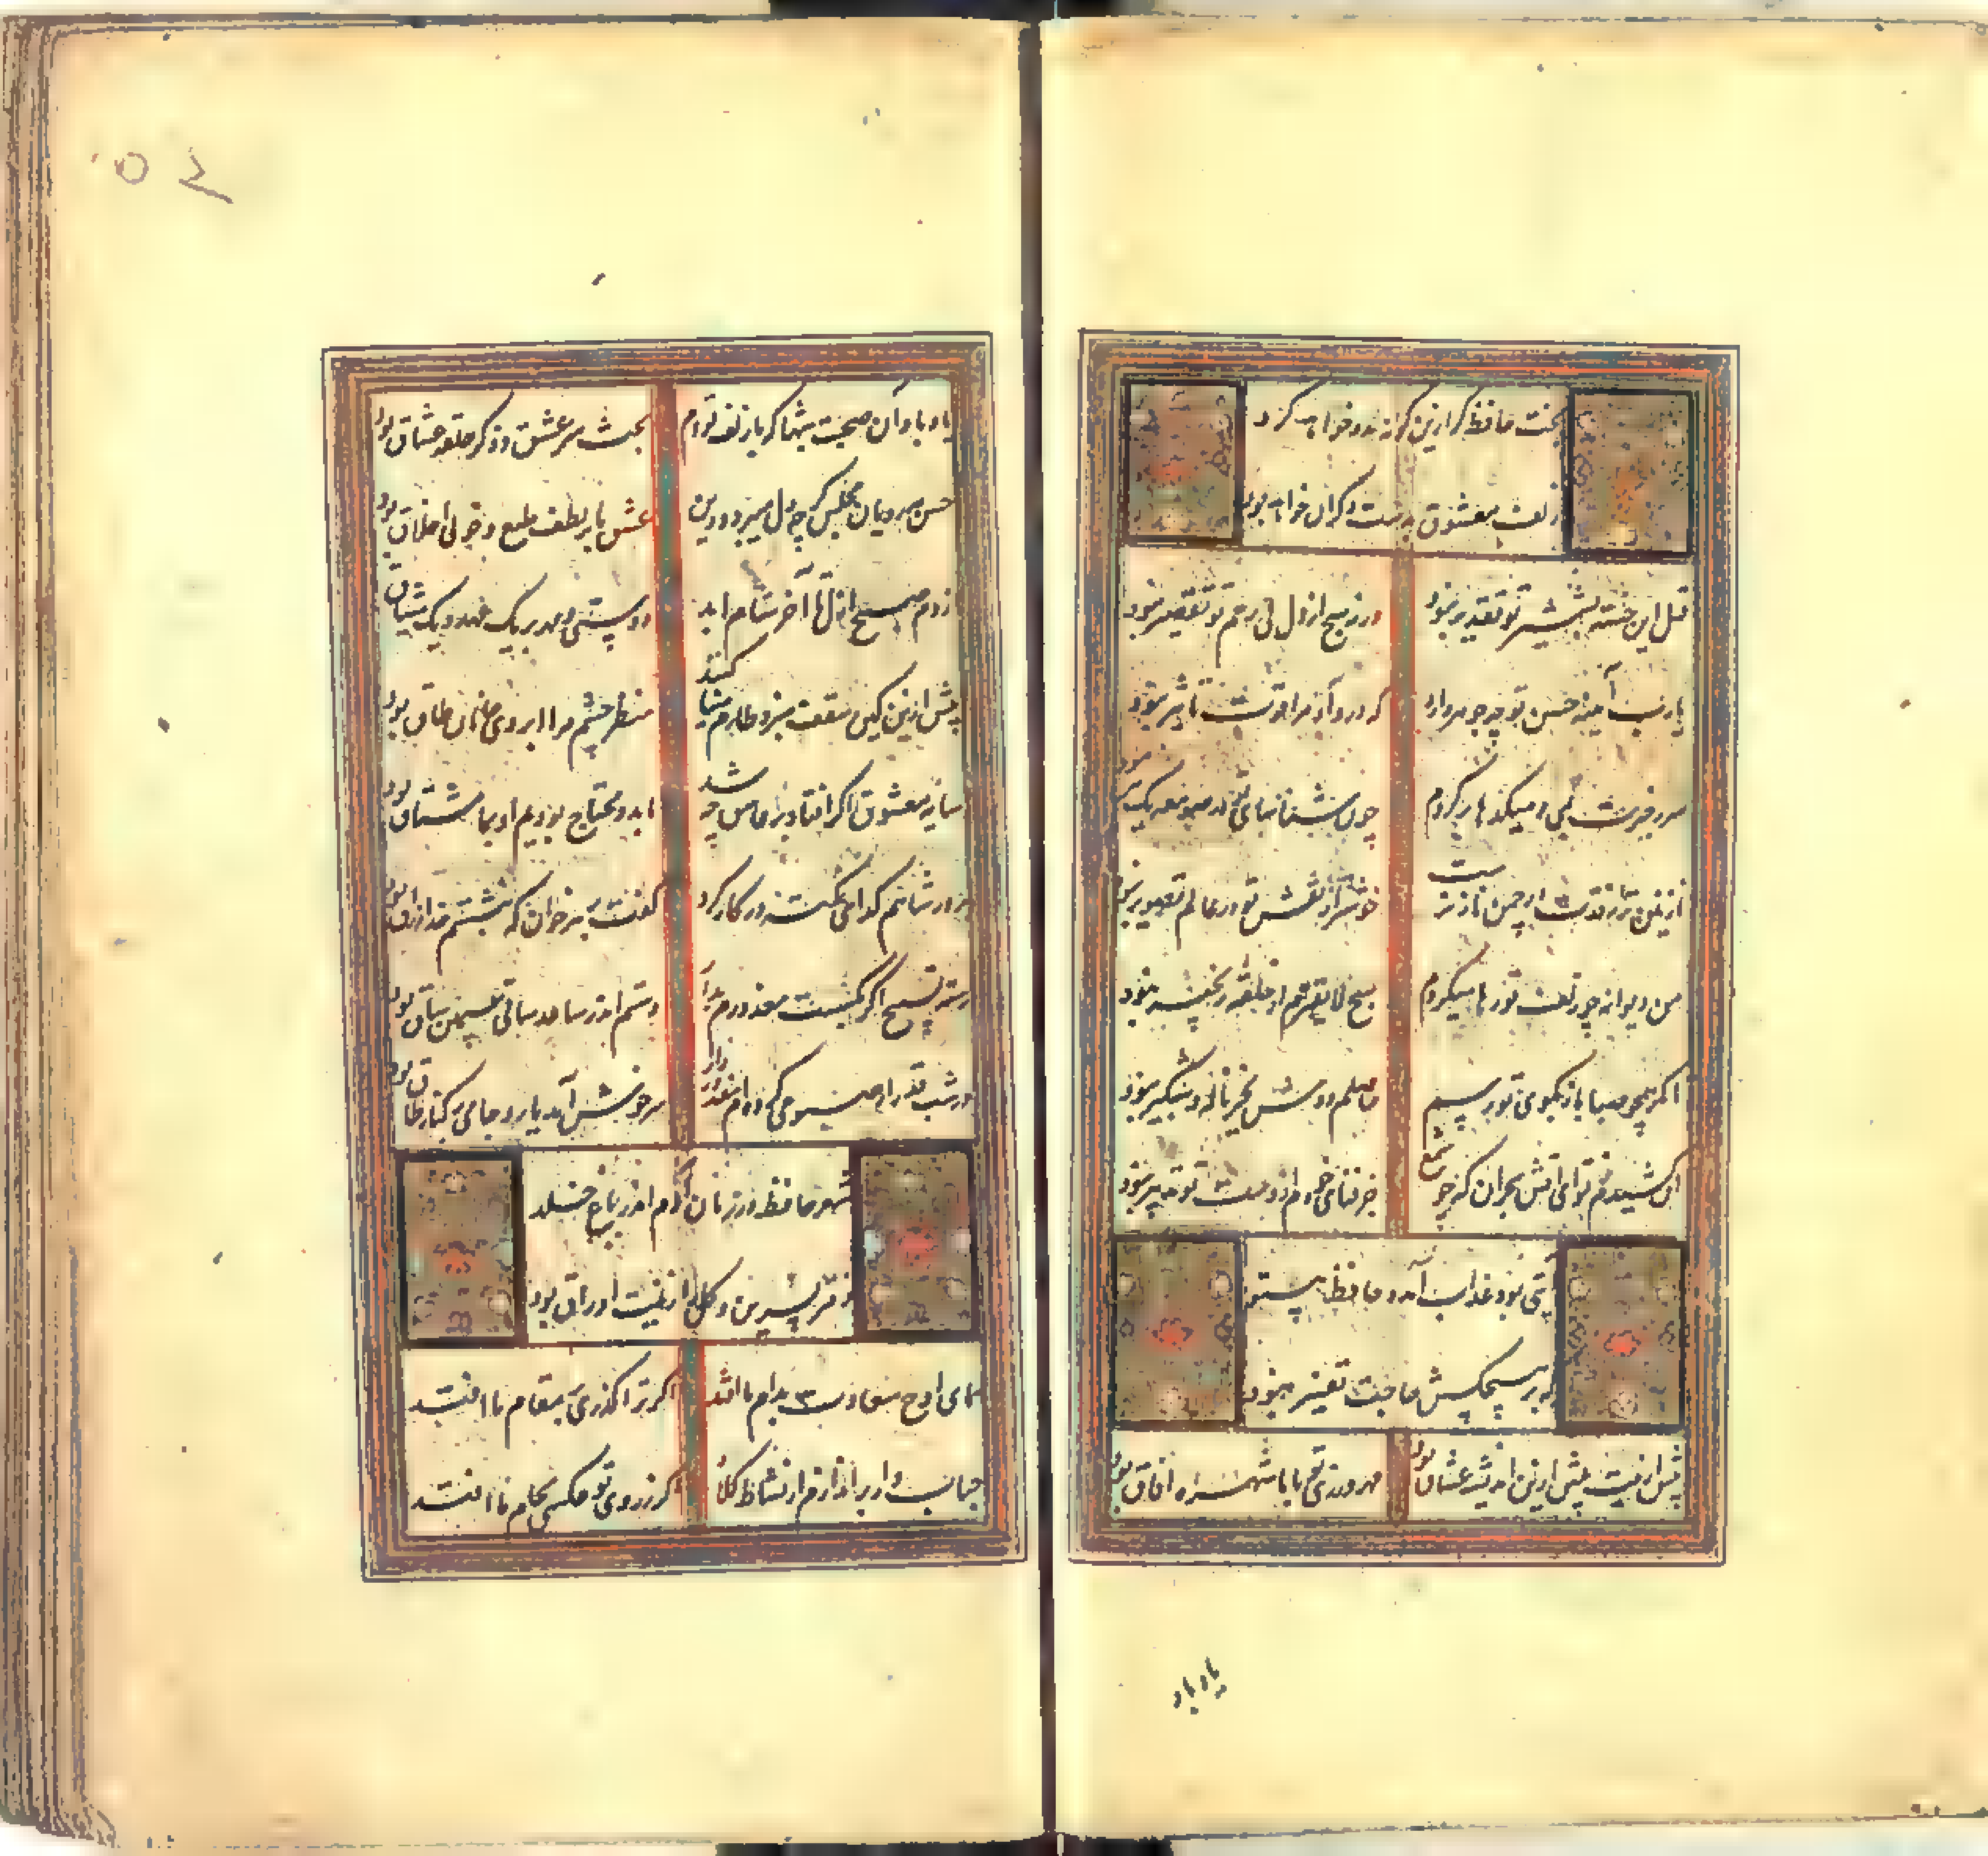 بخت حافظ گر ازین گونه مدد خواهد کرد
زلف معشوقه بدست دگران خواهد بود
قتل این خسته بشمشیر تو تقدیر نبود
ورنه هیچ از دل بی رحم تو تقصیر نبود
یارب آیینه حسن تو چه جوهر دارد
که درو آه مرا قوت تاثیر نبود
سر ز حیرت بدر میکدها بر کردم
چون شناسای تو در صومعه یک پیر نبود
نازنین تر ز قدت در چمن ناز نرست
خوشتر از نقش تو در عالم تصویر نبود
من دیوانه چو زلف تو رها میکردم
هیچ لایق ترم از حلقه زنجیر نبود
تا مگر همچو صبا باز بکوی تو رسم
حاصلم دوش بجز ناله شبگیر نبود
آن کشیدم ز تو ای آتش هجران که چو شمع
جز فنای خودم از دست تو تدبیر نبود
آیتی بود عذاب آمده حافظ بی تو
که بر هیچکسش حاجت تفسیر نبود
پیش ازینت بیش ازین اندیشه عشاق بود
مهرورزی تو با ما شهره آفاق بود
یاد باد
یاد باد آن صحبت شبها که با زلف توام
بحث سر عشق و ذکر حلقه عشاق بود
حسن مهرویان مجلس گرچه دل میبرد و دین
عشق با بر لطف طبع و خوبی اخلاق بود
از دم صبح ازل تا آخر شام ابد
دوستی و مهر بر یک عهد و یک میثاق
پیش ازین کین سقف سبز و طارم مینا کنند
منظر چشم مرا ابروی جانان طاق بود
سایه معشوق اگر افتاد بر عاشق چه شد
ما بدو محتاج بودیم او بما مشتاق بود
بر در شاهم گدایی نکته در کار کرد
گفت بر هر خوان که بنشستم خدا رزاق بود
رشته تسبیح اگر بگسست معذورم بدار
دستم اندر ساعد ساقی سیمین ساق بود
در شب قدر ار صبوحی کرده ام معذور دار
سرخوش آمد یار و جامی بر کنار طاق بود
شعر حافظ در زمان آدم اندر باغ خلد
دفتر نسرین و گل را زینت اوراق بود
همای اوج سعادت بدام ما افتد
اگر ترا گذری بر مقام ما افتد
حباب وار بر اندازم از نشاط کلاه
اگر ز روی تو عکسی بجام ما افتد